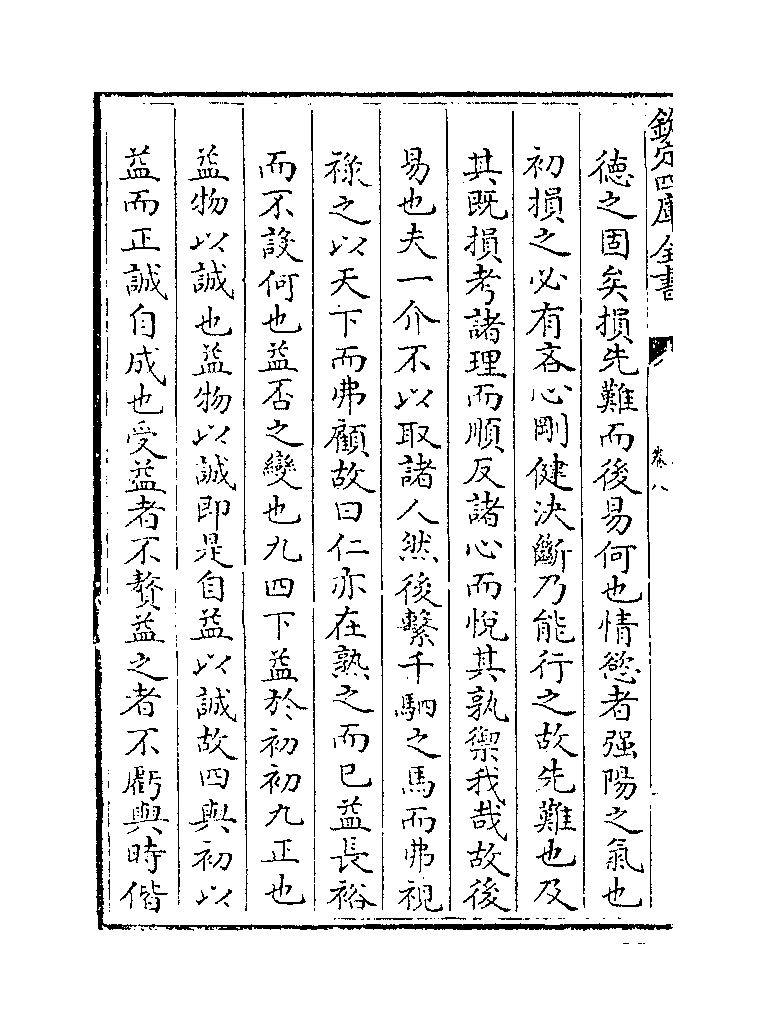 欽定四庫全書
卷八
德之固矣損先難而後易何也情慾者强陽之氣也
初損之必有吝心剛健決斷乃能行之故先難也及
其既損考諸理而順反諸心而悅其孰禦我哉故後
易也夫一介不以取諸人然後繫千駟之馬而弗視
祿之以天下而弗顧故曰仁亦在熟之而已益長裕
而不設何也益否之變也九四下益於初初九正也
益物以誠也益物以誠即是自益以誠故四與初以
益而正誠自成也受益者不贅益之者不虧與時偕